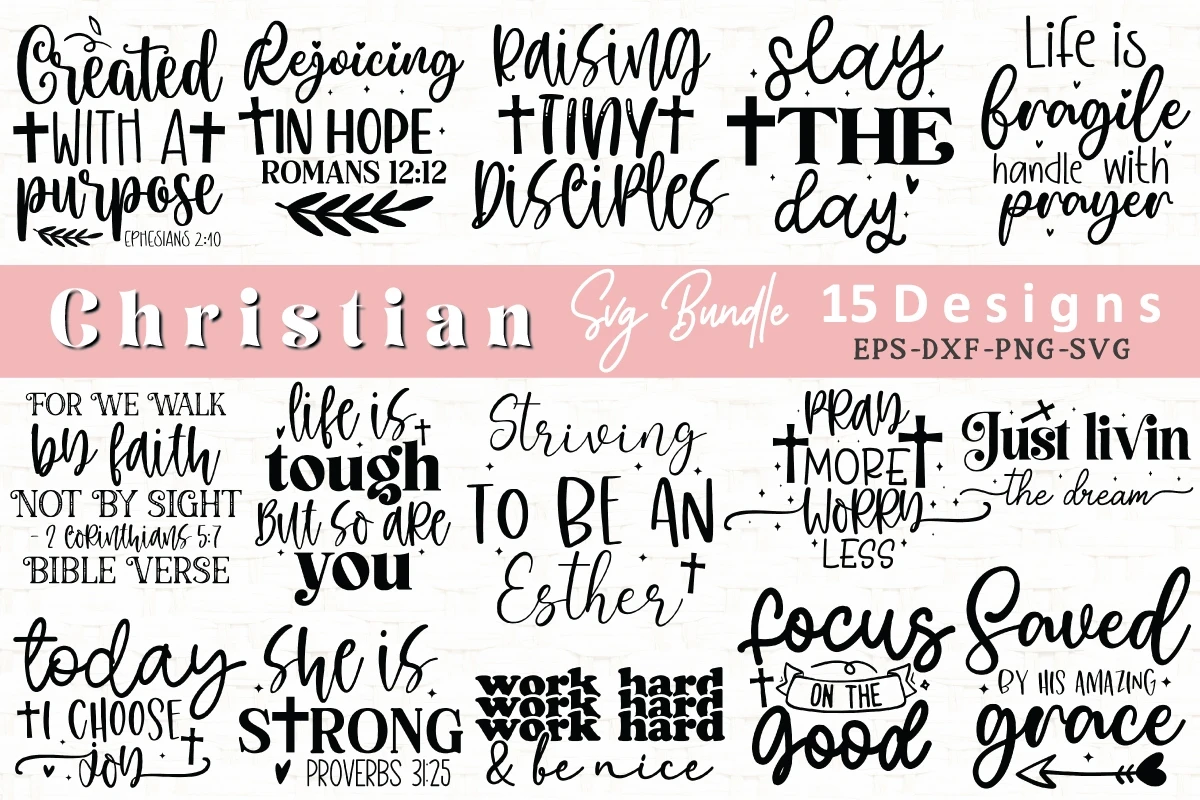 Created
WITH A
purpose
EPHESIANS 2:10
Rejoicing
IN HOPE
ROMANS 12:12
Raising
TINY
Disciples
slay
THE
day
Life is
fragile
handle with
prayer
Christian Svg Bundle 15 Designs
EPS-DXF-PNG-SVG
FOR WE WALK
by faith
NOT BY SIGHT
- 2 Corinthians 5:7
BIBLE VERSE
life is
tough
But so are
you
Striving
TO BE AN
Esther
PRAY
MORE
WORRY
LESS
Just livin
the dream
today
I CHOOSE
joy
she is
STRONG
PROVERBS 31:25
work hard
work hard
work hard
& be nice
focus
ON THE
good
Saved
BY HIS AMAZING
grace